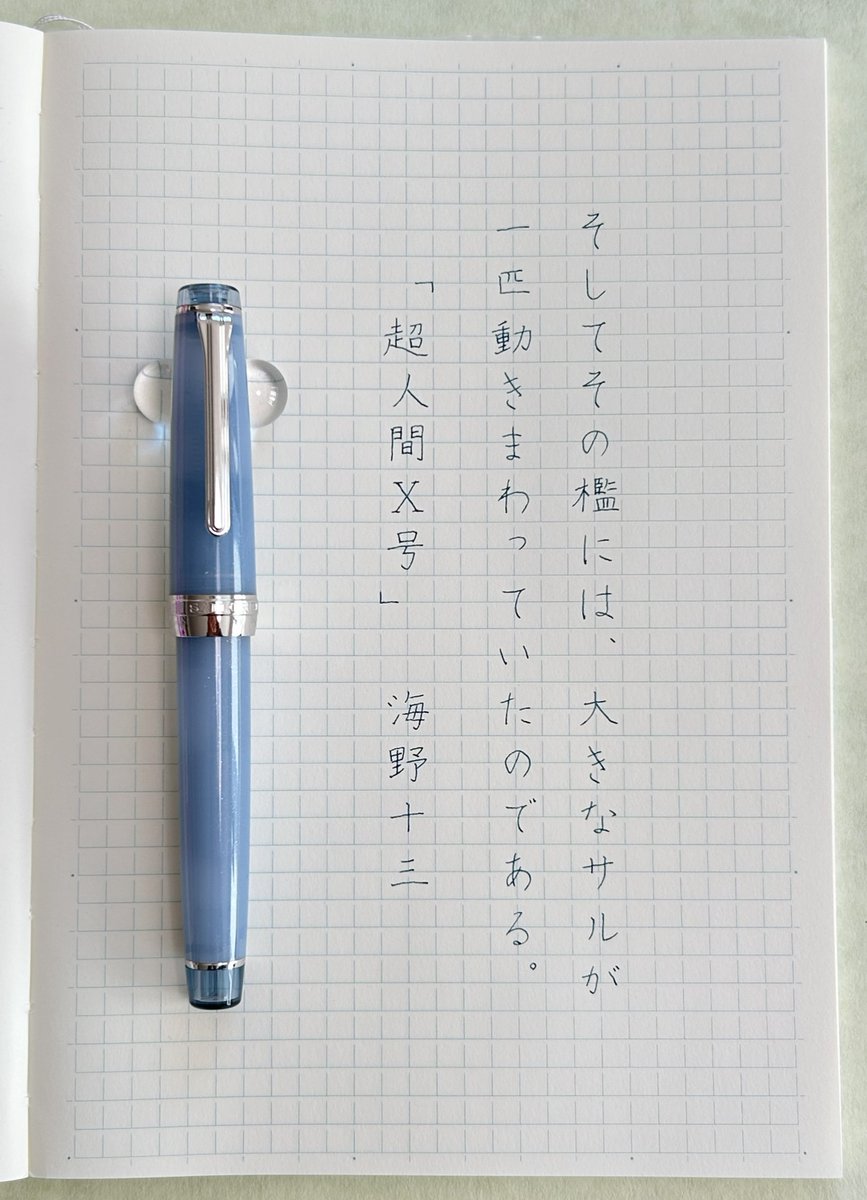 そしてその檻には、大きなサルが
一匹動きまわっていたのである。
「超人間X号」　海野十三